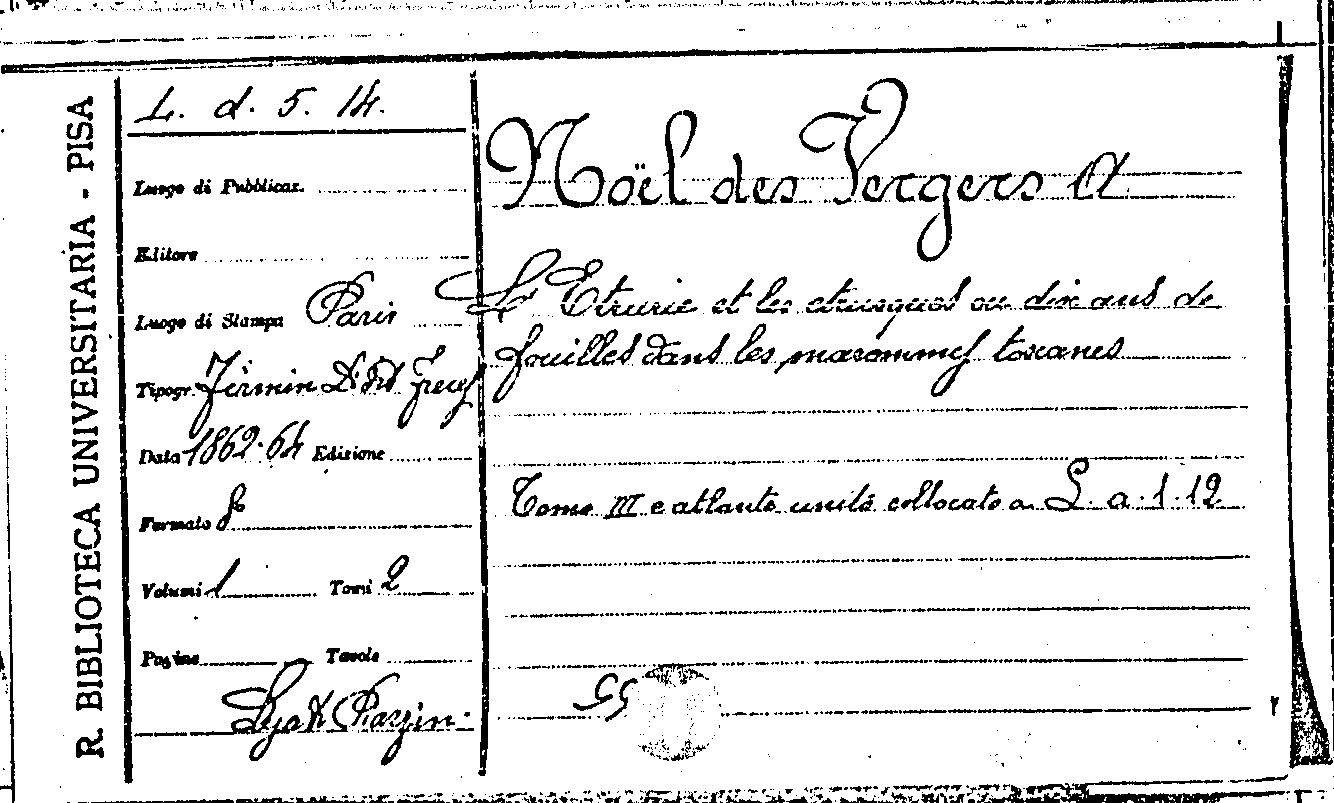 R. BIBLIOTECA UNIVERSITARIA - PISA
L. d. 5. 14.
Luogo di Pubblicaz.
Editore
Luogo di Stampa Paris
Tipogr. Firmin Didot Frères
Data 1862-64 Edizione
Formato 8
Volumi 1 Tomi 2
Pagine Tavole
Noël des Vergers A
L'Etrurie et les etrusques ou dix ans de
fouilles dans les maremmes toscanes
Tomo III e atlante unito collocato a L. a. 1. 12